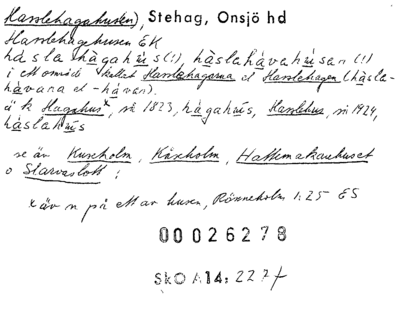 Hasslehagahusen), Stehag, Onsjö hd
Hasslehagehusen EK
hàslahàgahús(!), hàslahávahúsan(!)
i ett område kallat Hasslehagarna el Hasslehagen (hàsla-
hávana el -hávan).
ä k Hagahus x, nä 1823, hágahús, Hasslehus, nä 1924,
hàslahús
se äv Kuxholm, Kåxholm, Hattmakarehuset
o Starvaslott;
x äv n på ett av husen, Rönneholm 1:25 ES
00026278
SkO A14: 227f